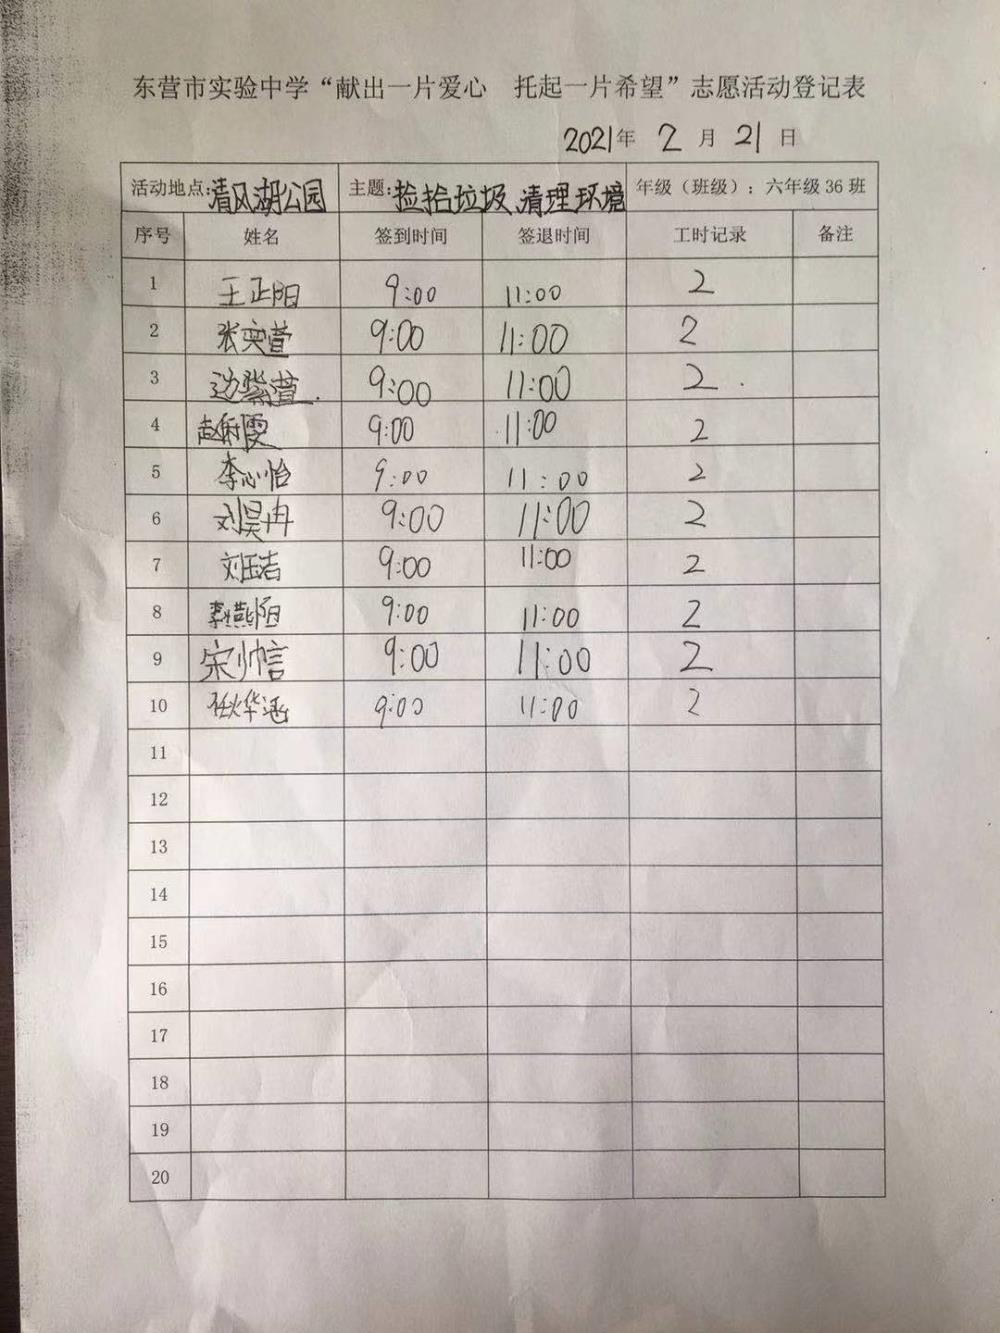 东营市实验中学“献出一片爱心 托起一片希望”志愿活动登记表
2021年 2 月 21 日
活动地点:清风湖公园 主题:捡拾垃圾、清理环境 年级（班级）：六年级 36 班
序号 姓名 签到时间 签退时间 工时记录 备注
1 王正阳 9:00 11:00 2
2 张奕萱 9:00 11:00 2
3 边紫萱. 9:00 11:00 2
4 9:00 11:00 2
5 李心怡 9:00 11:00 2
6 刘昊冉 9:00 11:00 2
7 刘玉洁 9:00 11:00 2
8 9:00 11:00 2
9 宋帅言 9:00 11:00 2
10 9:00 11:00 2
11
12
13
14
15
16
17
18
19
20